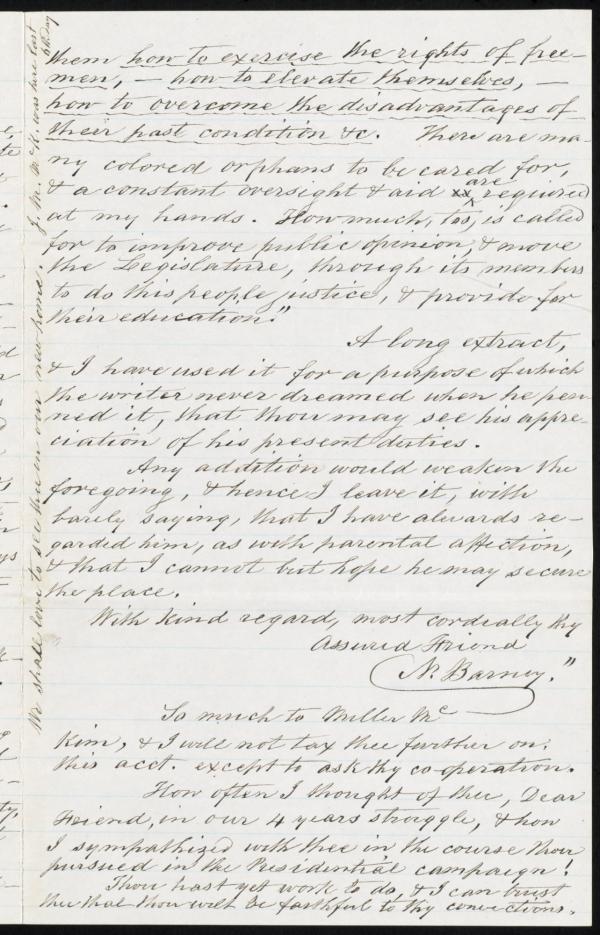 them how to exercise the rights of free-
men, — how to elevate themselves, —
how to overcome the disadvantages of
their past condition &c. There are ma-
ny colored orphans to be cared for,
& a constant oversight & aid are required
at my hands. How much, too, is called
for to improve public opinion, & move
the Legislature, through its members
to do this people justice, & provide for
their education."
A long extract,
& I have used it for a purpose of which
the writer never dreamed when he pen-
ned it, that thou may see his appre-
ciation of his present duties.
Any addition would weaken the
foregoing, & hence I leave it, with
barely saying, that I have alwards re-
garded him, as with parental affection,
& that I cannot but hope he may secure
the place.
With kind regard, most cordially thy
Assured Friend
N. Barney."
So much to Miller Mc
Kim, & I will not tax thee further on
this acct. except to ask thy co-operation.
How often I thought of thee, Dear
Friend, in our 4 years struggle, & how
I sympathized with thee in the course thou
pursued in the Presidential campaign!
Thou hast yet work to do, & I can trust
thee that thou wilt be faithful to thy convictions.
We shall love to see thee in our new home. J. M. McK. was here last
6th day